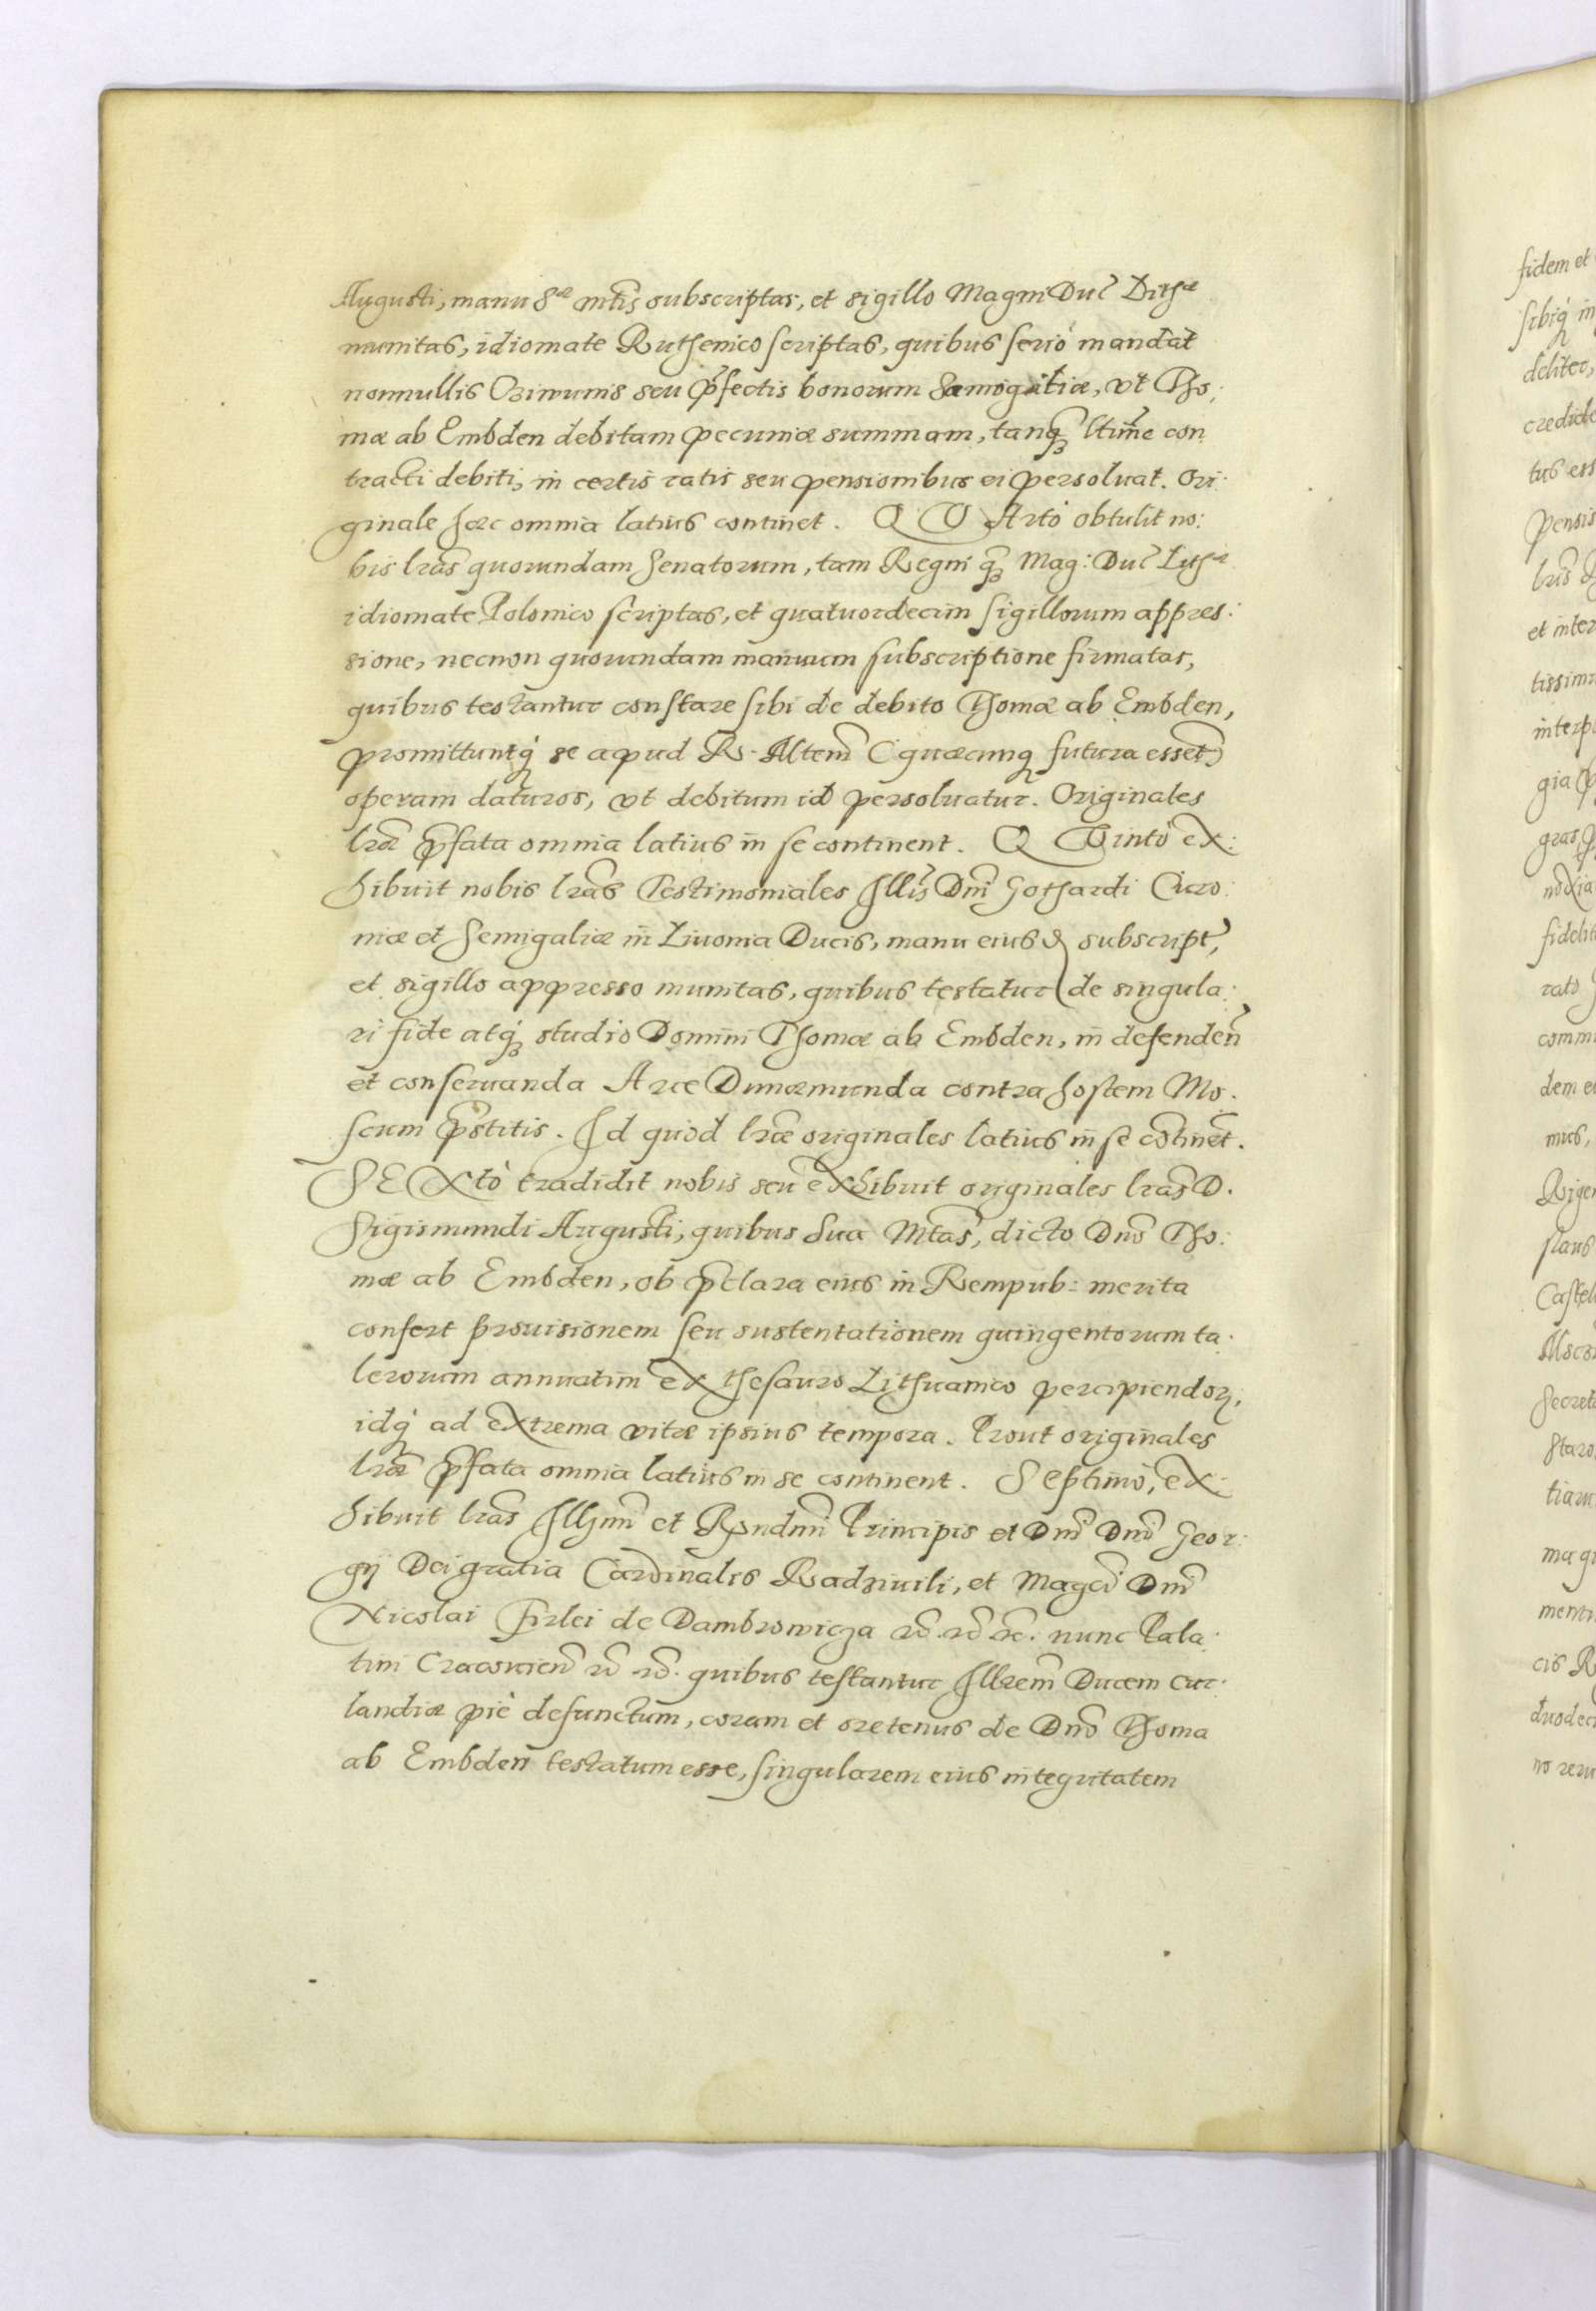 Augusti, manu Sæ mtis subscriptas, et sigillo Magni Duc̃ Lithæ
munitas, idiomate Ruthenico scriptas, quibus seriò mandat
nonnullis Ciwunis seu p̃fectis bonorum Samogitiæ, vt Tho:
mæ ab Embden debitam pecuniæ summam, tanq̃ ltime con
tracti debiti, in certis ratis seu pensionibus ei persoluat. Ori:
ginale hæc omnia latius continet. QVArtò obtulit no:
bis lrãs quorundam Senatorum, tam Regni q̃ Mag: Duc̃ Lithæ
idiomate Polonico scriptas, et quatuordecim sigillorum appres:
sione, necnon quorundam manuum subscriptione firmatas,
quibus testantur constare sibi de debito Thomæ ab Embden,
promittuntq́; se apud R. Mtem (quæcunq; futura esset)
operam daturos, vt debitum id persoluatur. Originales
lræ p̃fata omnia latius in se continent. QVintò ex:
hibuit nobis lrãs Testimoniales Illis Dni Gothardi Curo:
niæ et Semigaliæ in Liuonia Ducis, manu eiusd subscript,
et sigillo appresso munitas, quibus testatur de singula:
ri fide atq́; studio Domini Thomæ ab Embden, in defenden
et conseruanda Arce Dunæmunda contra hostem Mo.
scum p̃stitis. Id quod lræ originales latius in se cõtinet.
SEXtò tradidit nobis seu exhibuit originales lrãs D.
Sigismundi Augusti, quibus Sua Mtas, dicto Dno Tho:
mæ ab Embden, ob p̃clara eius in Rempub: merita
confert prouisionem seu sustentationem quingentorum ta:
lerorum annuatim ex thesauro Lithuanico percipiendor,
idq́; ad extrema vitæ ipsius tempora. Prout originales
lræ p̃fata omnia latius in se continent. Septimò, ex:
hibuit lrãs Illmi et Rndmi Principis et Dni Dno Geor:
gij Dei gratia Cardinalis Radziuili, et Magci Dni
Nicolai Firlei de Dambrowicza &c. &c. &c. nunc Pala:
tini Cracouien &c &c. quibus testantur Illrem Ducem Cur:
landiæ piè defunctum, coram et oretenus de Dno Thoma
ab Embden testatum esse, singularem eius integritatem
fidem et
sibiq́; in
deliter,
credide
tus ess
pensis
lris
et inter
tissimu
interp
gia
gras
noxia
fidelit
rato
comm
dem e
mus,
Rigen
slaus
Castel
Mscz
Secreta
Staro
tiam
ma g
menti
cis R
duodec
no reru